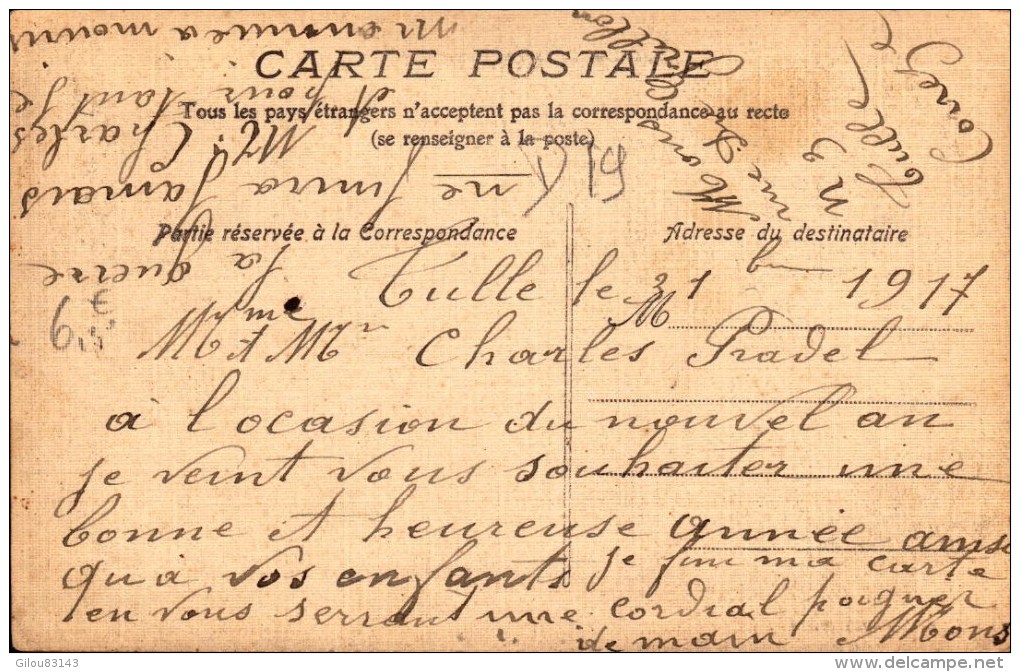 CARTE POSTALE
Tous les pays étrangers n'acceptent pas la correspondance au recto
(se renseigner à la poste)
D 19
Partie réservée à la Correspondance
Adresse du destinataire
Tulle le 31 1917
Mme
et Mr Charles Pradel
à l'ocasion du nouvel an
je veint vous souhaiter une
bonne et heureuse année ainsi
qu'a vos enfants je fini ma carte
en vous serrant une cordial poigner
de main Mons
Mons
rue
n 3
Tulle
Corrèze
Mr Charles
et pour tant je
m ennuie a mourir
la guerre
ne finira Jamais
Gilou83143
delcampe.net